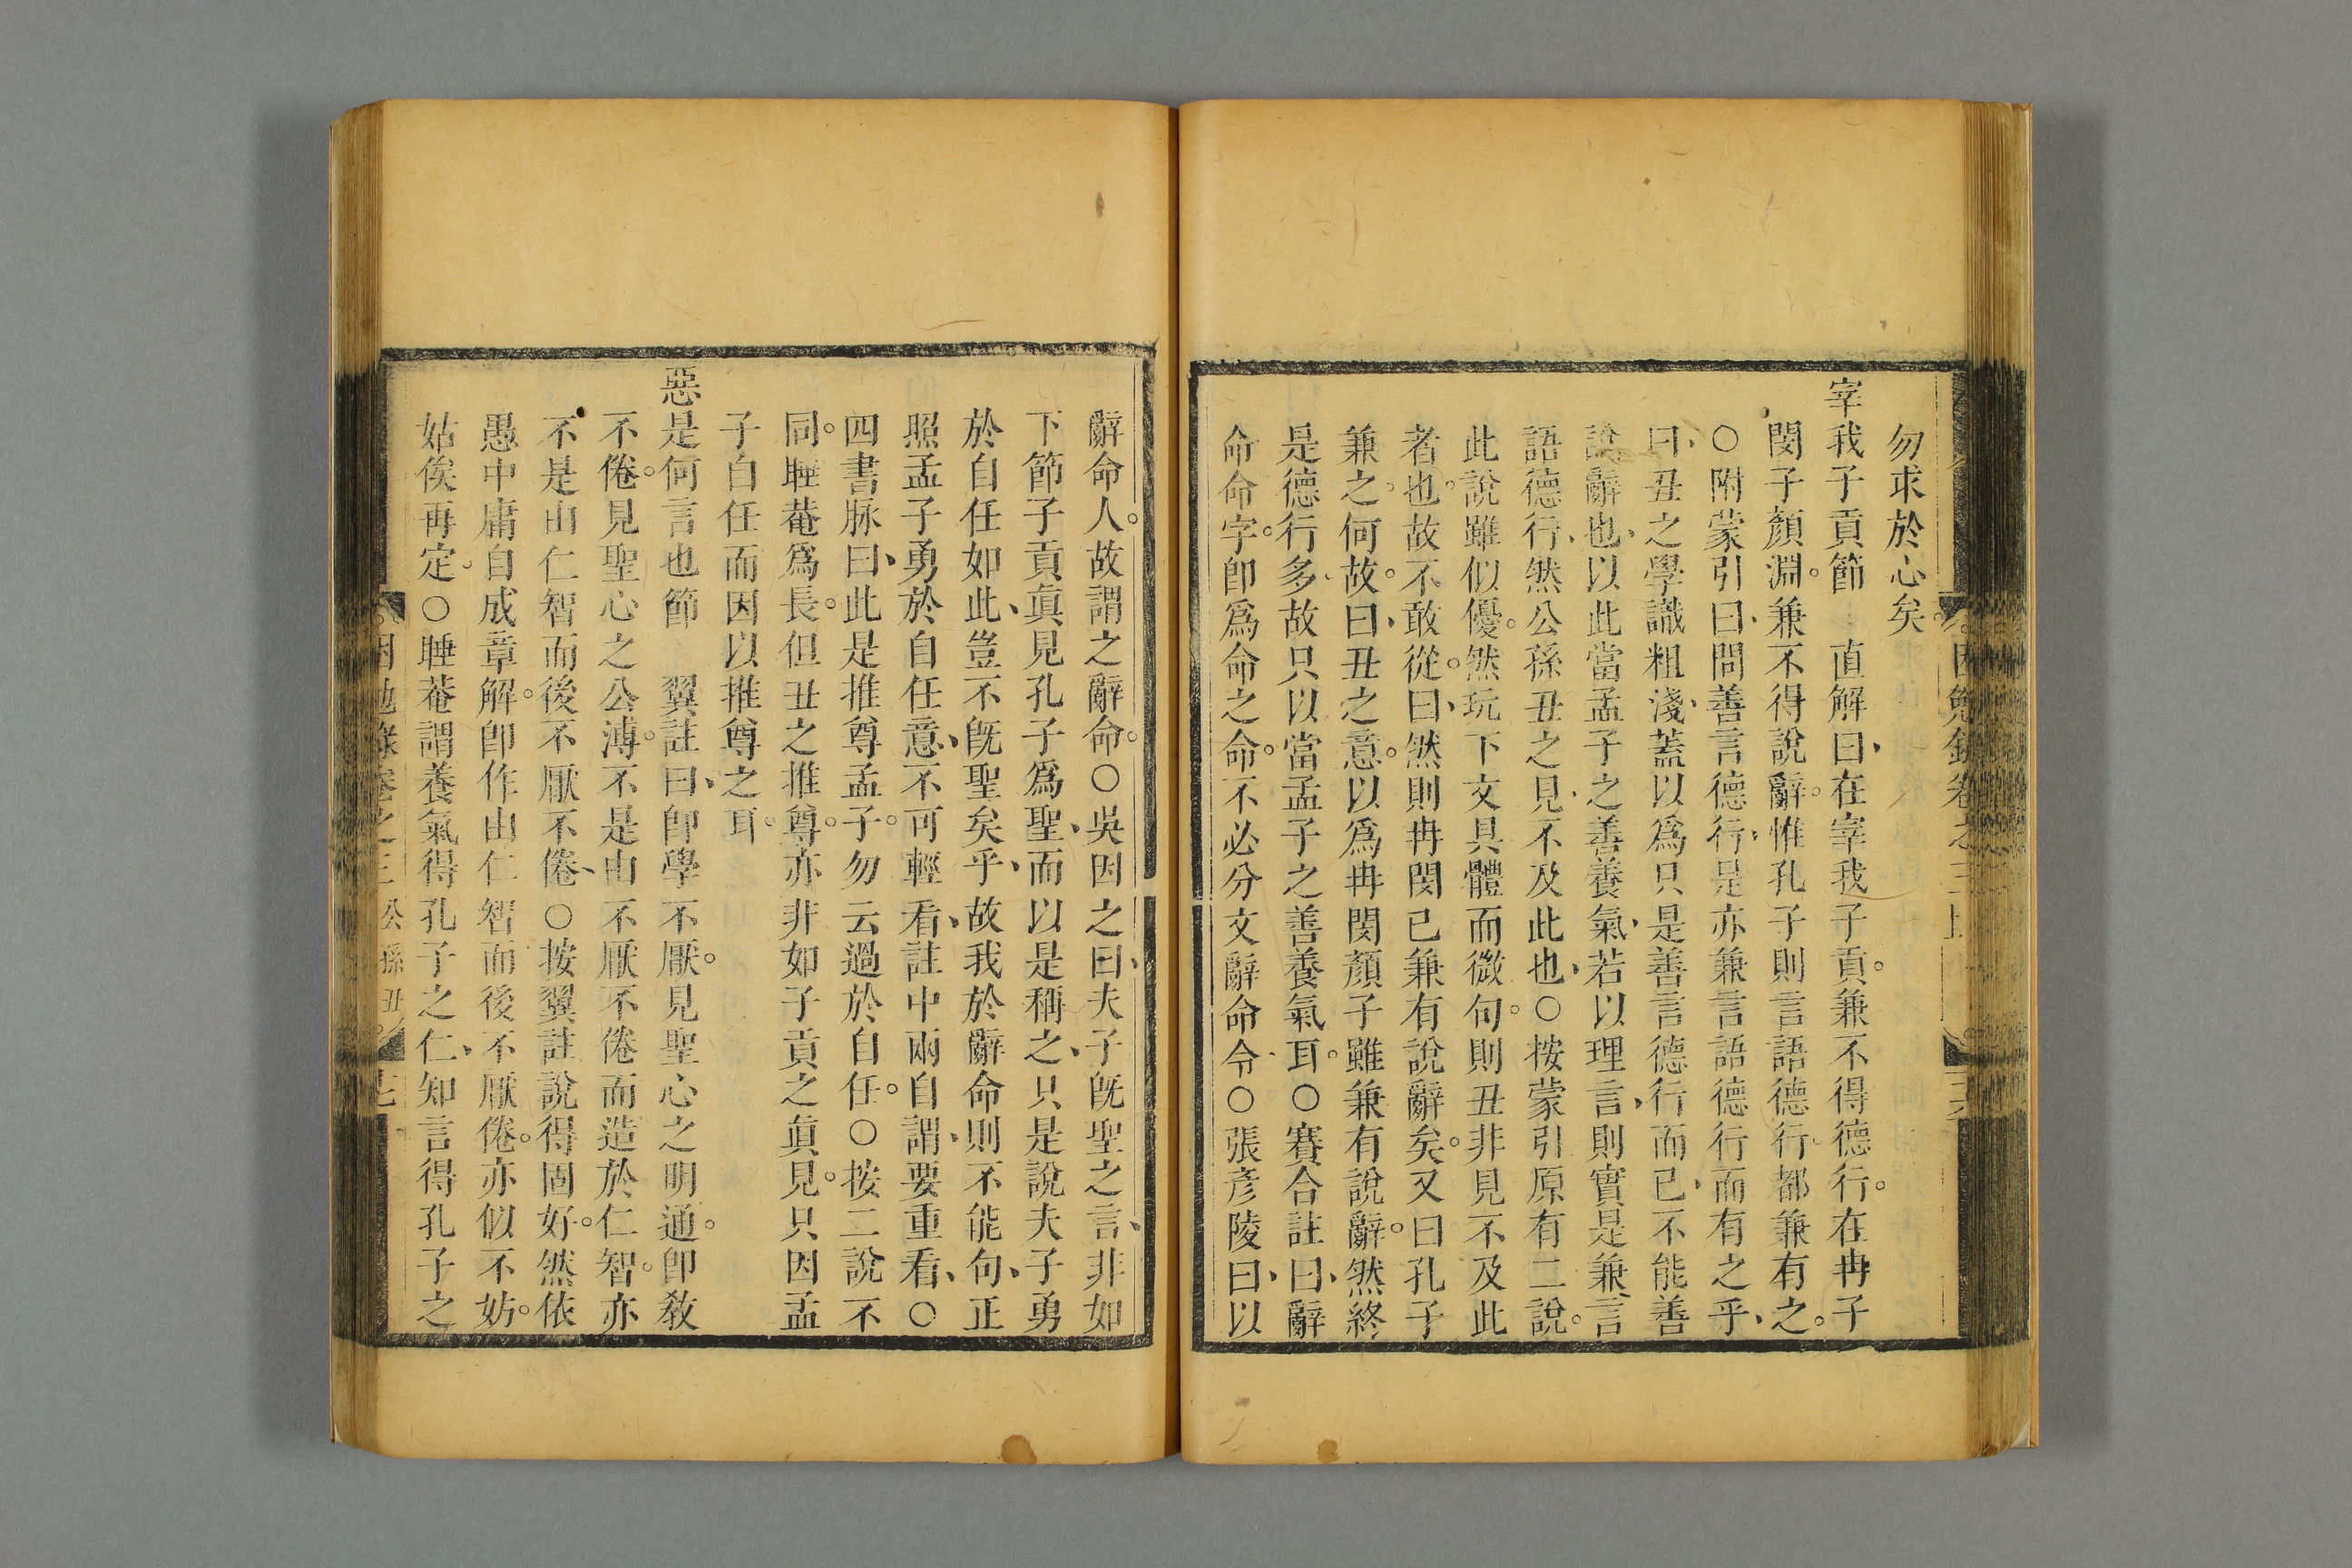 勿求於心矣。
宰我子貢節　直解曰、在宰我子貢。兼不得德行。在冉子
閔子顏淵。兼不得說辭。惟孔子則言語德行。都兼有之。
○附蒙引曰、問善言德行、是亦兼言語德行而有之乎、
曰、丑之學識粗淺、蓋以爲只是善言德行而已、不能善
說辭也、以此當孟子之善養氣、若以理言、則實是兼言
語德行、然公孫丑之見、不及此也、○按蒙引原有二說。
此說雖似優。然玩下文具體而微句。則丑非見不及此
者也。故不敢從。曰、然則冉閔已兼有說辭矣。又曰孔子
兼之。何故。曰、丑之意。以爲冉閔顏子雖兼有說辭。然終
是德行多。故只以當孟子之善養氣耳。○賽合註曰、辭
命命字。卽爲命之命。不必分文辭命令○張彥陵曰、以
辭命人。故謂之辭命。○吳因之曰、夫子旣聖之言、非如
下節子貢眞見孔子爲聖、而以是稱之、只是說夫子勇
於自任如此、豈不旣聖矣乎、故我於辭命則不能句、正
照孟子勇於自任意、不可輕看、註中兩自謂、要重看、○
四書脉曰、此是推尊孟子。勿云過於自任。○按二說不
同。睡菴爲長。但丑之推尊。亦非如子貢之眞見。只因孟
子自任而因以推尊之耳。
惡是何言也節　翼註曰、卽學不厭。見聖心之明通。卽敎
不倦。見聖心之公溥。不是由不厭不倦而造於仁智。亦
不是由仁智而後不厭不倦、○按翼註說得固好。然依
愚中庸自成章解。卽作由仁智而後不厭倦。亦似不妨。
姑俟再定。○睡菴謂養氣得孔子之仁、知言得孔子之
困勉錄卷之三 公孫丑